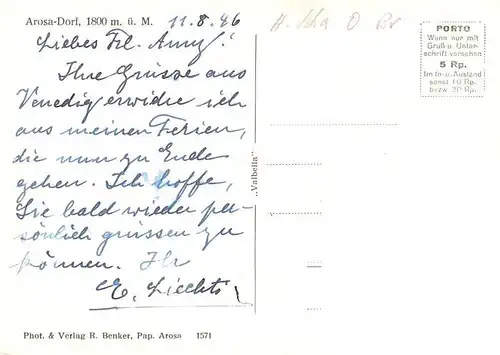 Arosa-Dorf, 1800 m. ü. M.
11.8.46
Liebes Frl. Amy!
Ihre Grüsse aus
Venedig erwidre ich
aus meinen Ferien,
die nun zu Ende
gehen. Ich hoffe,
Sie bald wieder per-
sönlich grüssen zu
können. Ihr
E. Liechti
PORTO
Wenn nur mit
Gruß u. Unter-
schrift versehen
5 Rp.
Im In- u. Ausland
sonst 10 Rp.
bezw. 20 Rp.
„Valbella“
Phot. & Verlag R. Benker, Pap. Arosa 1571